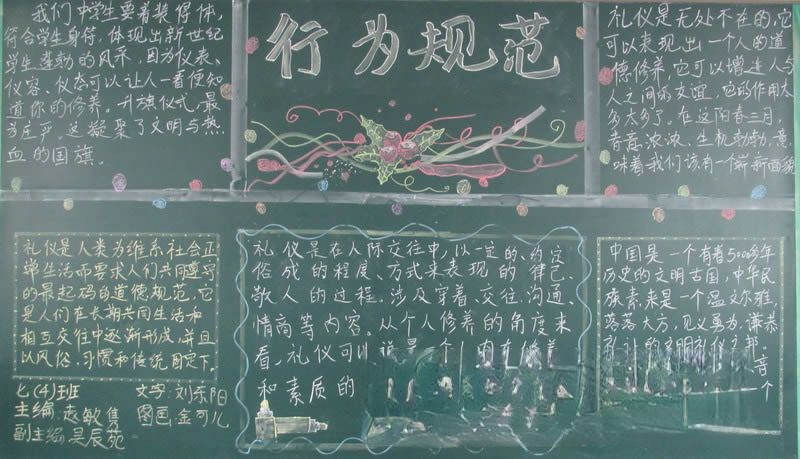 我们中学生要着装得体,
符合学生身符,体现出新世纪
学生蓬勃的风采,因为仪表、
仪容、仪态可以让人一看便知
道你的修养。升旗仪式,最
为庄严,这凝聚了文明与热
血的国旗。
行为规范
礼仪是无处不在的,它
可以表现出一个人的道
德修养,它可以增进人与
人之间的友谊,它的作用太
多太多了。在这阳春三月,
春意浓浓、生机勃勃,意
味着我们该有一个崭新面貌
礼仪是人类为维系社会正
常生活而要求人们共同遵守
的最起码的道德规范,它
是人们在长期共同生活和
相互交往中逐渐形成,并且
以风俗、习惯和传统固定下。
七(4)班
文字:刘东阳
主编:赵敏隽
图画:金可儿
副主编:吴辰苑
礼仪是在人际交往中,以一定的、约定
俗成的程度、方式来表现的律己、
敬人的过程,涉及穿着、交往、沟通、
情商等内容。从个人修养的角度来
看,礼仪可以说是一个人内在修养
和素质的
中国是一个有着5000多年
历史的文明古国,中华民
族素来是一个温文尔雅,
落落大方,见义勇为,谦恭
礼让的文明礼仪之邦。
个